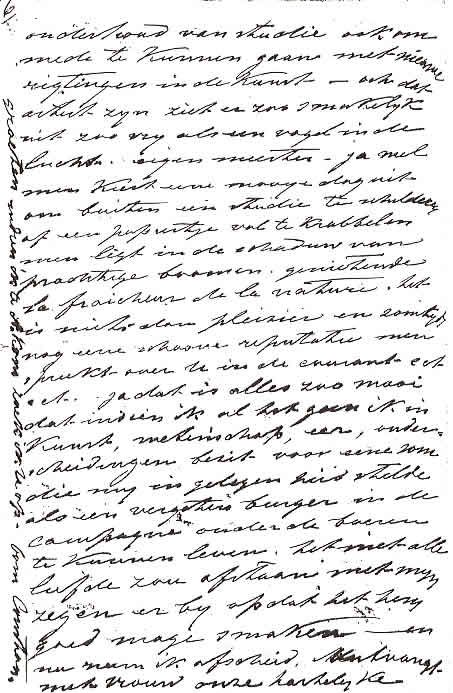 onderhoud van studie ook om
mede te kunnen gaan met nieuwe
rigtingen in de Kunst — och dat
artist zyn ziet er zoo smakelyk
uit zoo vry als een vogel in de
lucht. eigen meester — ja wel
men kiest eene mooye dag uit
om buiten een studie te schilderen
of een papiertje vol te krabbelen
men ligt in de schaduw van
prachtige boomen. genietende
la fraicheur de la nature. het
is niets dan pleizier en somtyds
nog eene schoone reputatie men
spreekt over u in de courant ect
ect. ja dat is alles zoo mooi
dat indien ik al het geen ik in
Kunst, wetenschap, eer, onder=
scheidingen bezit voor eene som
die my in gelegenheid stelde
als een vergeten burger in de
campagne onder de boeren
te kunnen leven. het met alle
liefde zou afstaan met myn
zegen er by opdat het hen
goed moge smaken — en
nu neem ik afscheid. Ontvangt
met vrouw onze hartelyke
groeten